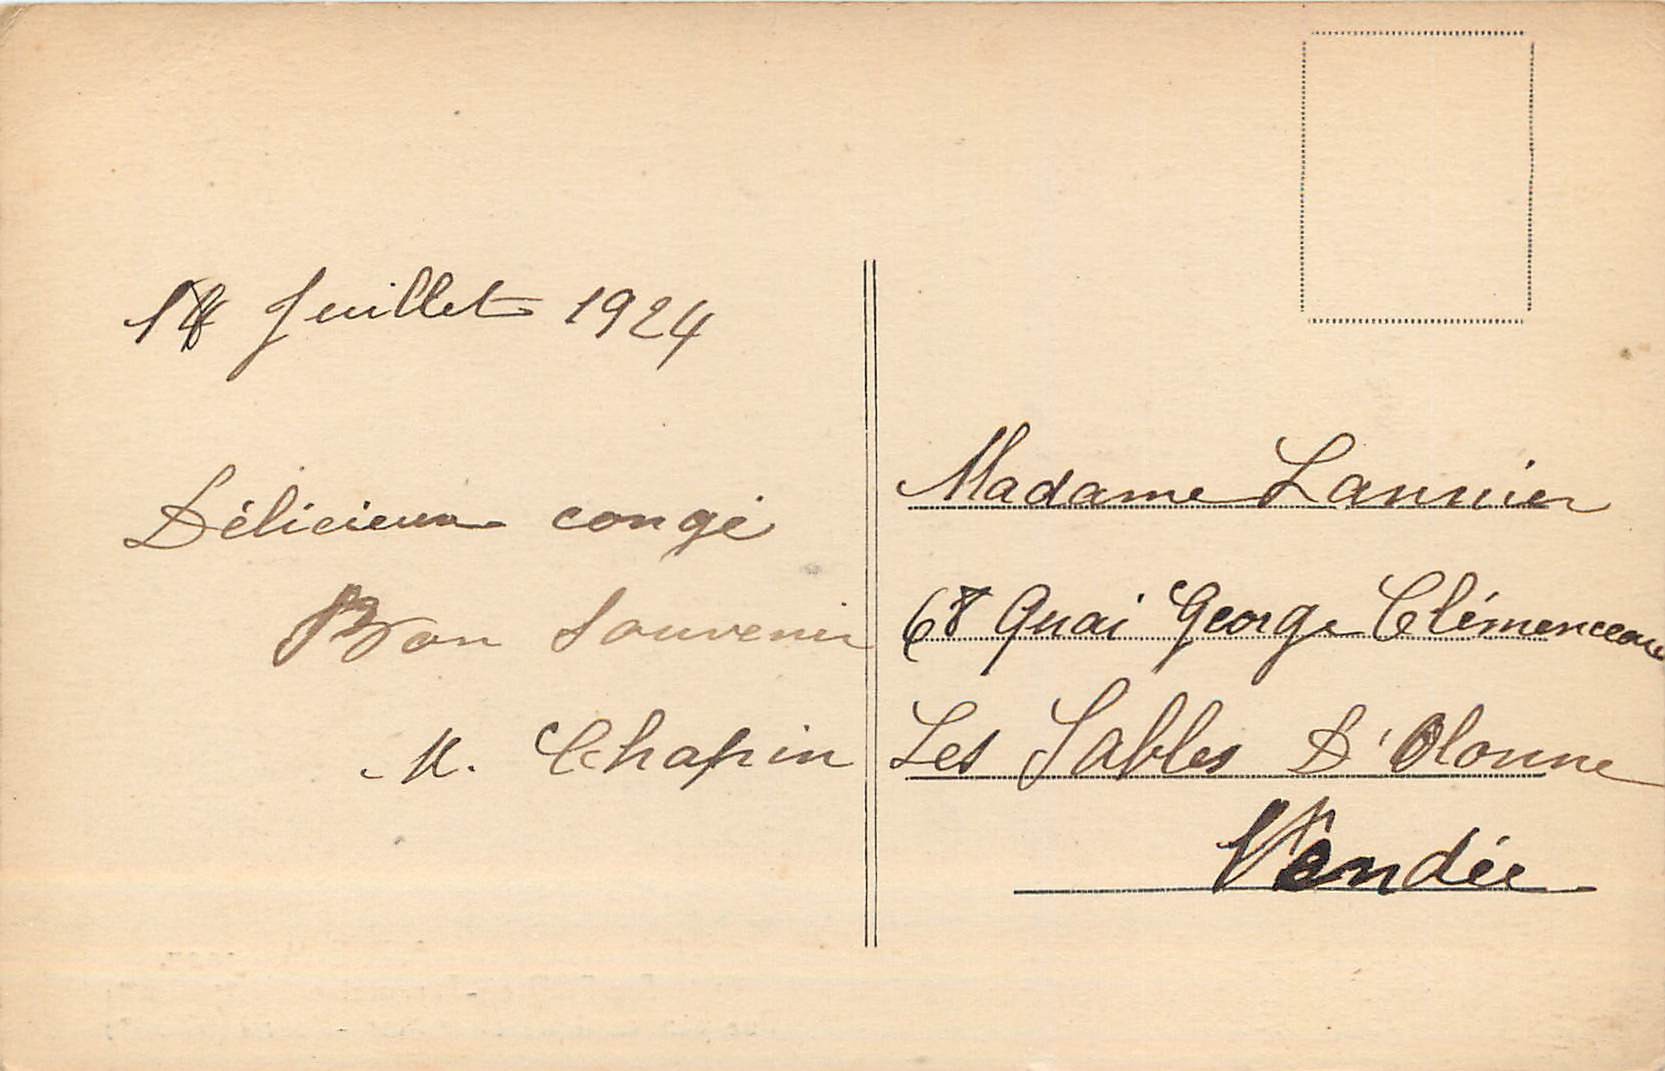 Juillet 1924
Délicieux congé
Bon Souvenir
M. Chapin
Madame Lannier
68 Quai George Clémenceau
Les Sables D'Olonne
Vendée